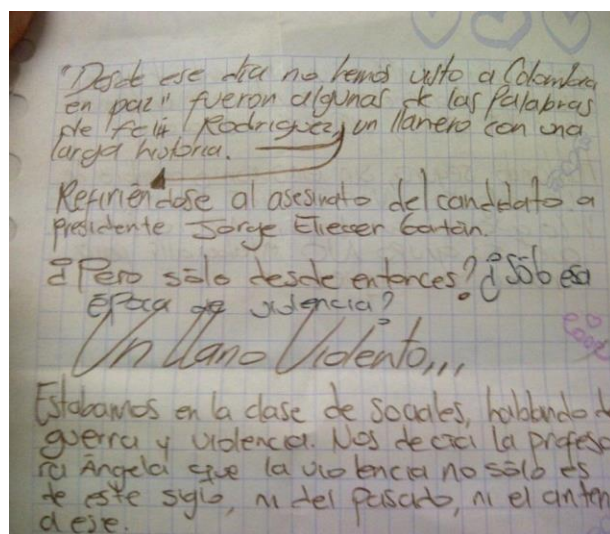 "Desde ese día no hemos visto a Colombia
en paz" fueron algunas de las Palabras
de Felix Rodriguez, un llanero con una
larga historia.
Refiriéndose al asesinato del candidato a
presidente Jorge Eliecer Gaitán.
¿Pero sólo desde entonces? ¿Sólo esa
época de violencia?
Un Llano Violento...
Estabamos en la clase de sociales, hablando d
guerra y violencia. Nos decía la profeso
ra Ángela que la violencia no sólo es
de este siglo, ni del pasado, ni el anteri
a ese.